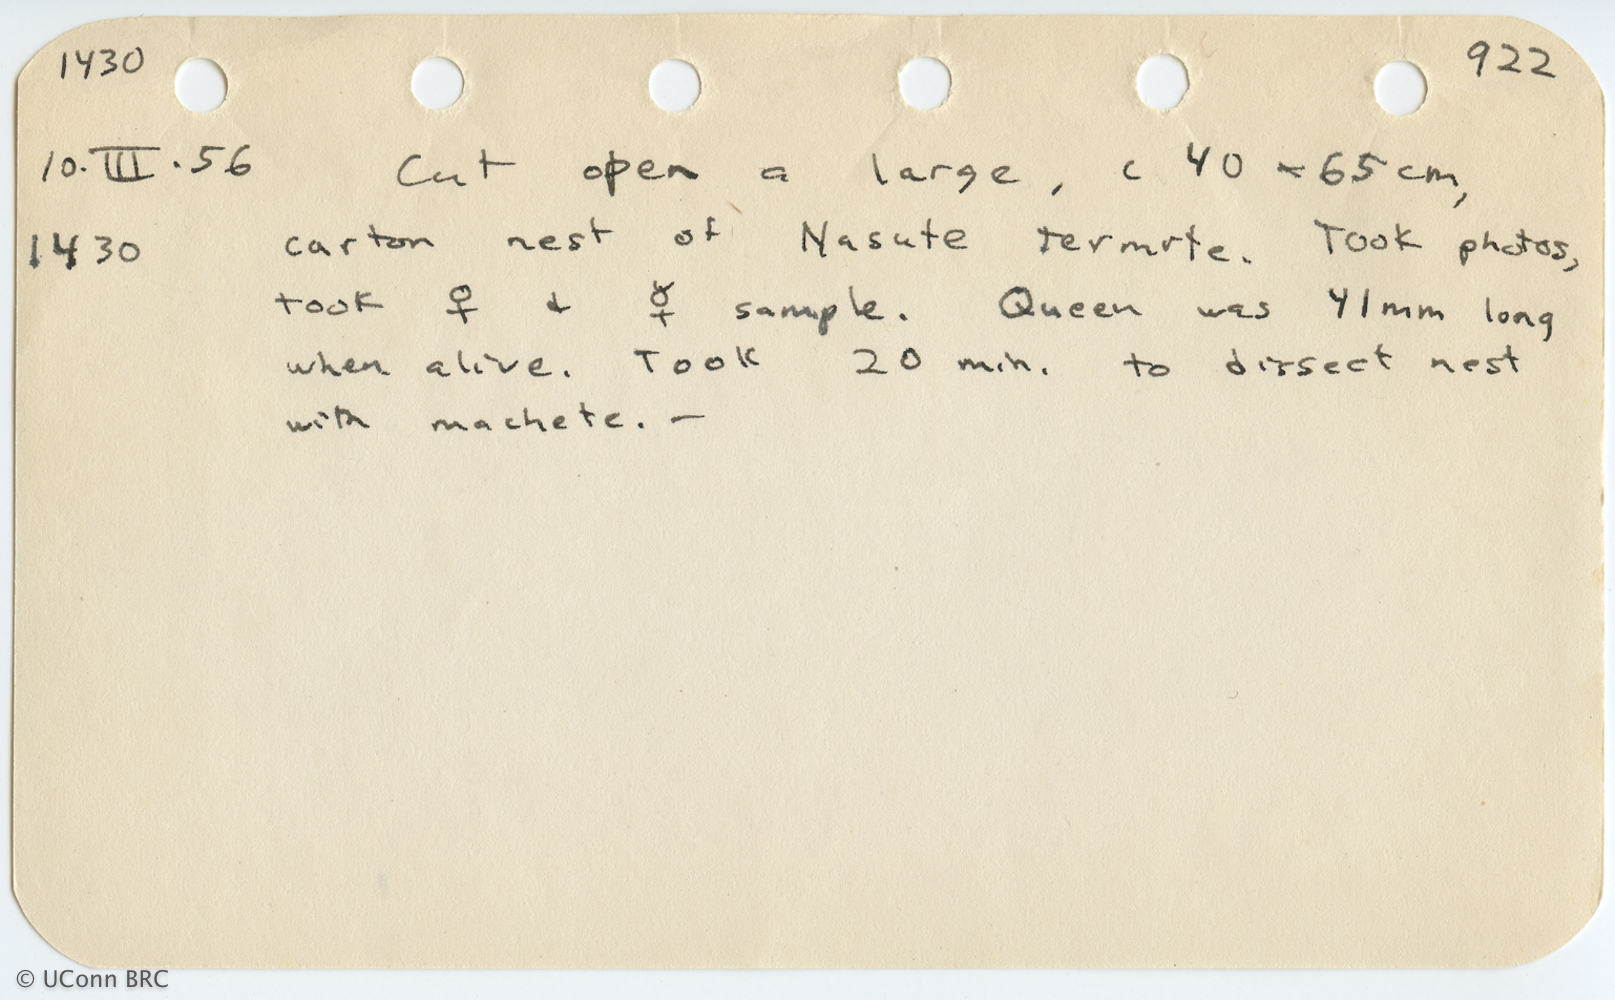 1430 922
10.III.56 Cut open a large, c 40 × 65 cm,
1430 carton nest of Nasute termite. Took photos,
took ♀ & ☿ sample. Queen was 41mm long
when alive. Took 20 min. to dissect nest
with machete. —
© UConn BRC